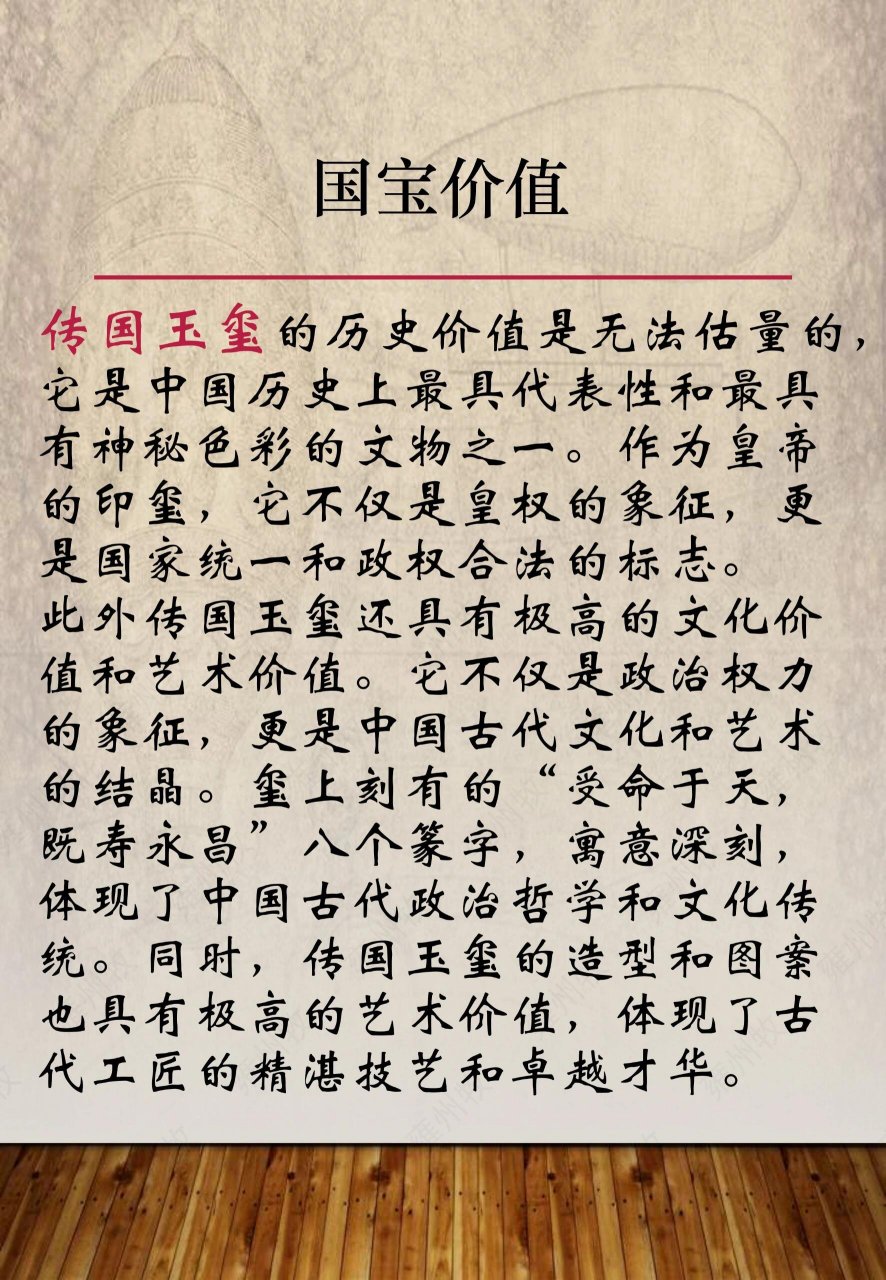 国宝价值
传国玉玺的历史价值是无法估量的，
它是中国历史上最具代表性和最具
有神秘色彩的文物之一。作为皇帝
的印玺，它不仅是皇权的象征，更
是国家统一和政权合法的标志。
此外传国玉玺还具有极高的文化价
值和艺术价值。它不仅是政治权力
的象征，更是中国古代文化和艺术
的结晶。玺上刻有的“受命于天，
既寿永昌”八个篆字，寓意深刻，
体现了中国古代政治哲学和文化传
统。同时，传国玉玺的造型和图案
也具有极高的艺术价值，体现了古
代工匠的精湛技艺和卓越才华。